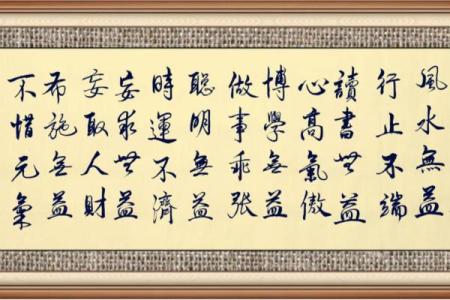 風水無益
行止不端
讀書無益
心高氣傲
博學無益
做事乖張
聰明無益
時運不濟
妄求無益
妄取人財
布施無益
不惜元氣